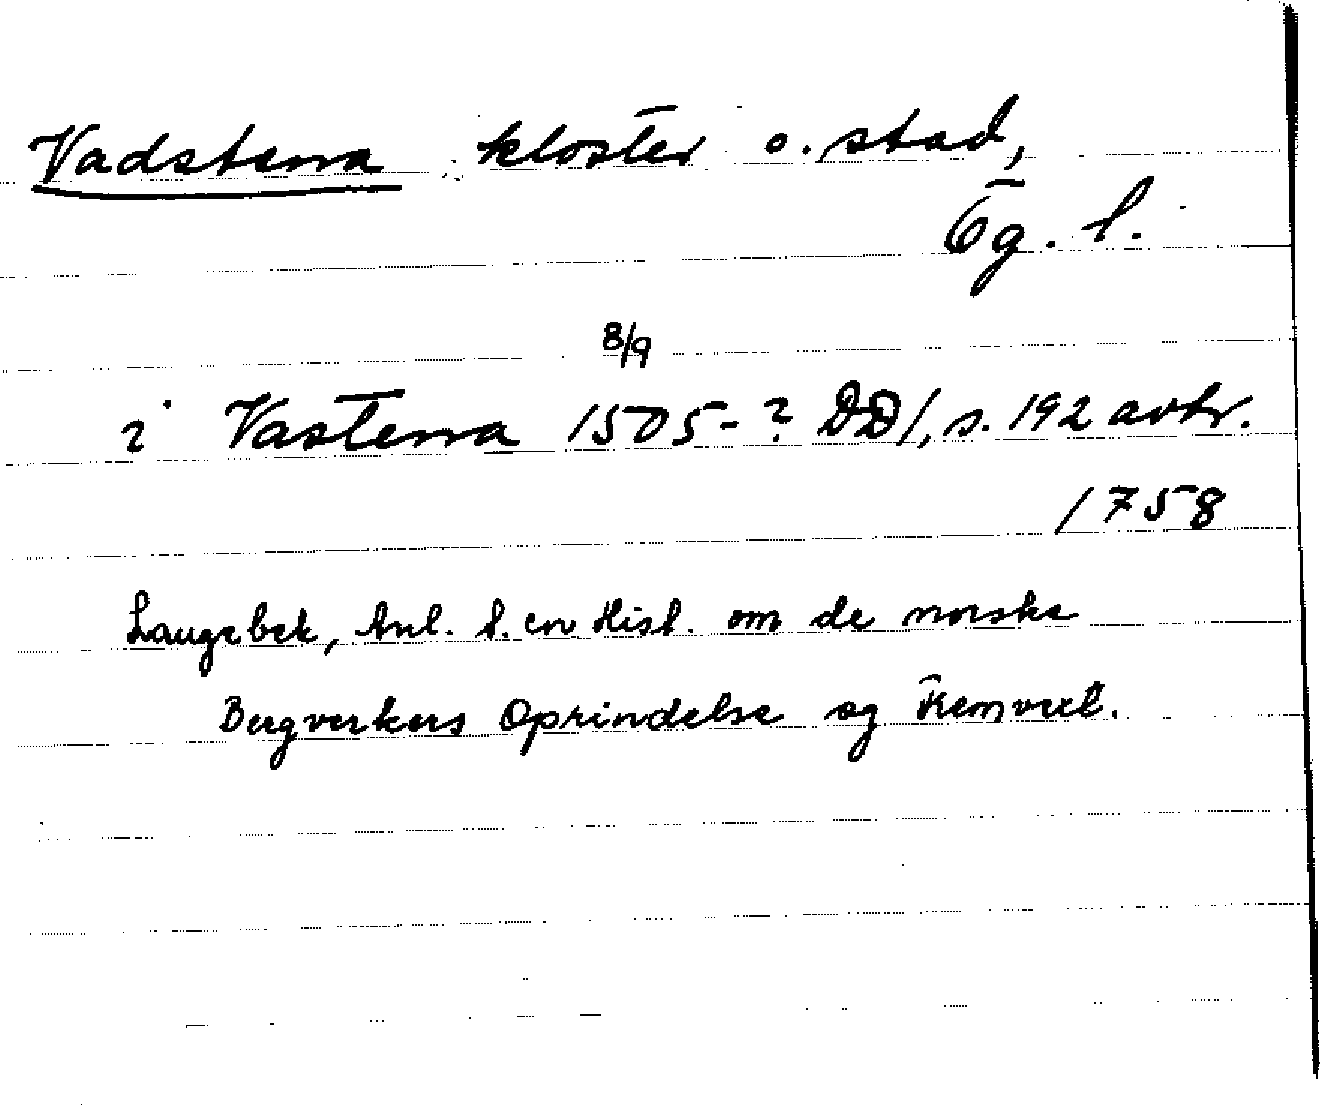 Vadstena kloster o. stad,
Ög. l.
8/9
i Vastena 1505-? DD1, s. 192 avtr.
1758
Langebek, Anl. t. en Hist. om de norske
Bergverkers Oprindelse og Fremvext.